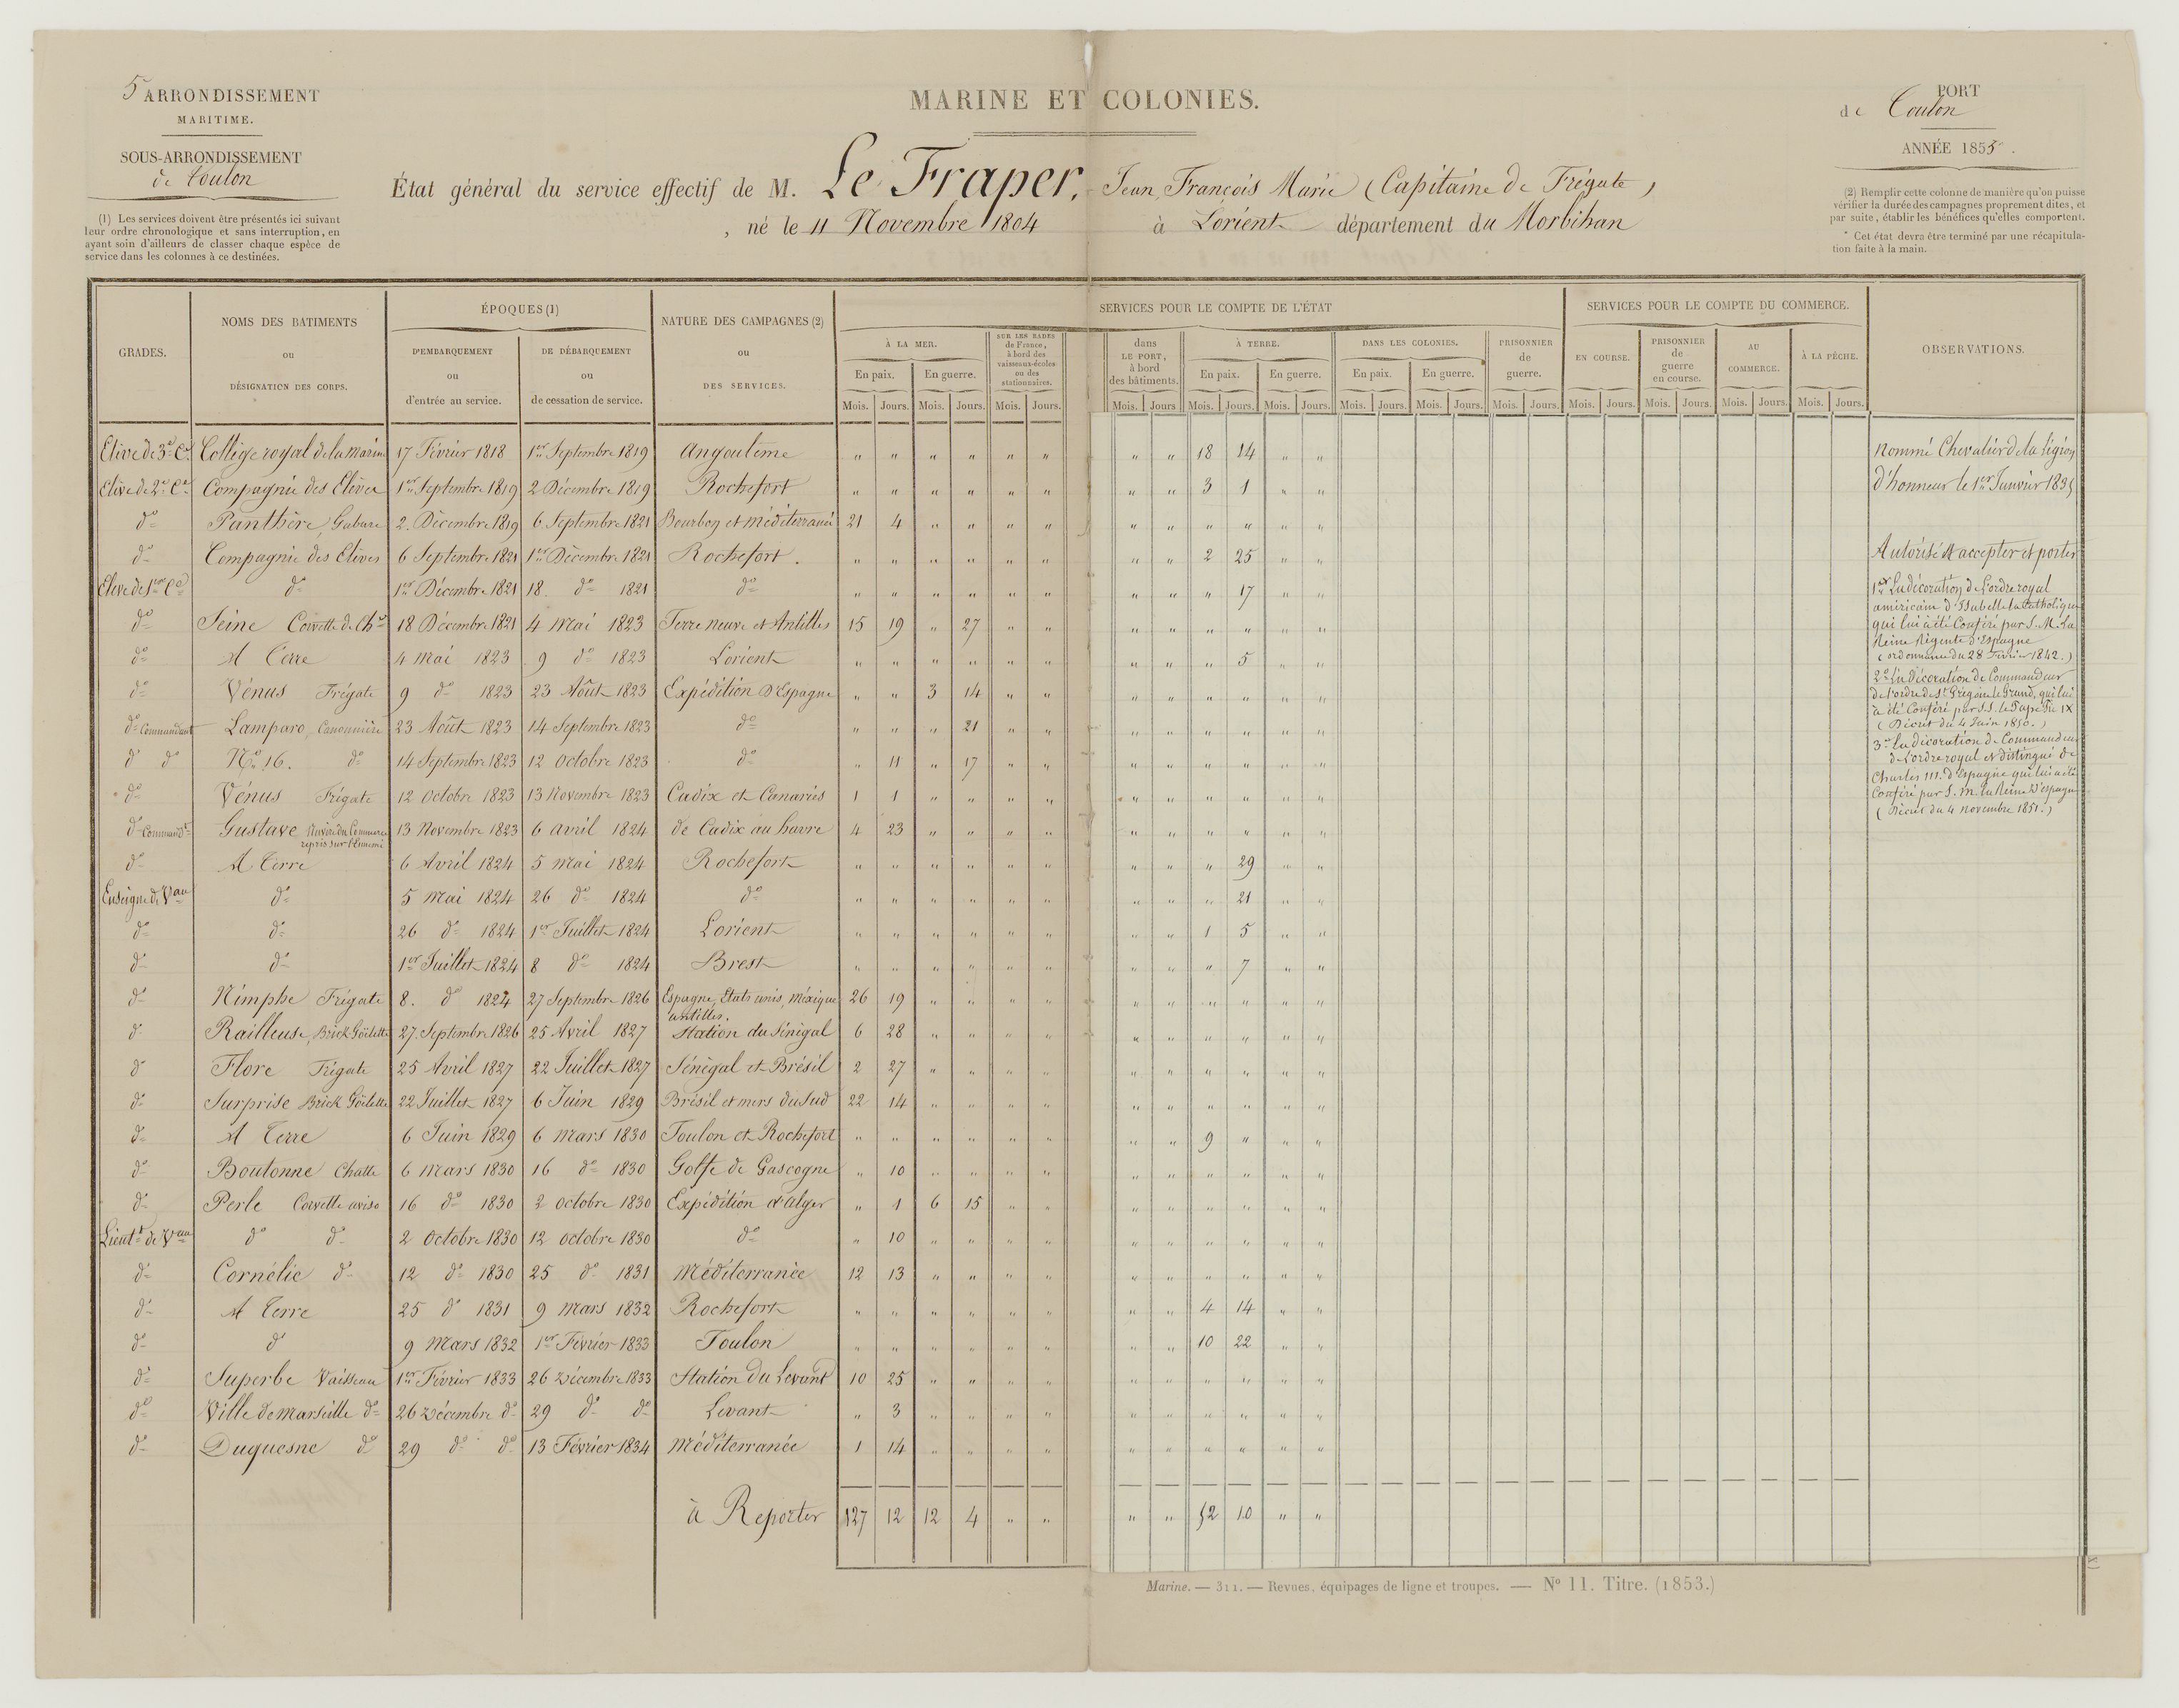 5e ARRONDISSEMENT
MARITIME.
SOUS-ARRONDISSEMENT
de Toulon
(1) Les services doivent être présentés ici suivant
leur ordre chronologique et sans interruption, en
ayant soin d'ailleurs de classer chaque espèce de
service dans les colonnes à ce destinées.
MARINE ET COLONIES.
État général du service effectif de M. Le Fraper, Jean, François Marie (Capitaine de Frégate)
, né le 11 Novembre 1804 à Lorient département du Morbihan
PORT
de Toulon
ANNÉE 1855.
(2) Remplir cette colonne de manière qu'on puisse
vérifier la durée des campagnes proprement dites, et
par suite, établir les bénéfices qu'elles comportent.
* Cet état devra être terminé par une récapitula-
tion faite à la main.
GRADES.
NOMS DES BATIMENTS
ou
DÉSIGNATION DES CORPS.
ÉPOQUES (1)
D'EMBARQUEMENT
ou
d'entrée au service.
DE DÉBARQUEMENT
ou
de cessation de service.
NATURE DES CAMPAGNES (2)
ou
DES SERVICES.
SERVICES POUR LE COMPTE DE L'ÉTAT
À LA MER.
En paix. En guerre.
SUR LES RADES
de France,
à bord des
vaisseaux-écoles
ou des
stationnaires.
dans
LE PORT,
à bord
des bâtiments.
À TERRE.
En paix. En guerre.
DANS LES COLONIES.
En paix. En guerre.
PRISONNIER
de
guerre.
SERVICES POUR LE COMPTE DU COMMERCE.
EN COURSE.
PRISONNIER
de
guerre
en course.
AU
COMMERCE.
À LA PÊCHE.
OBSERVATIONS.
Mois. Jours. Mois. Jours. Mois. Jours. Mois. Jours Mois. Jours. Mois. Jours. Mois. Jours. Mois. Jours. Mois. Jours. Mois. Jours. Mois. Jours. Mois. Jours. Mois. Jours.
Elève de 3e Ce Collège royal de la marine 17 Février 1818 1er Septembre 1819 Angoulème " " " " " " " " 18 14 " "
Elève de 2e Ce Compagnie des Elèves 1er Septembre 1819 2 Décembre 1819 Rochefort " " " " " " " " 3 1 " "
do Panthère, Gabare 2. Décembre 1819 6 Septembre 1821 Bourbon et méditerranée 21 4 " " " " " " " " " "
do Compagnie des Elèves 6 Septembre 1821 1er Décembre 1821 Rochefort. " " " " " " " " 2 25 " "
Elève de 1ere Ce do 1er Décembre 1821 18. do 1821 do " " " " " " " " " 17 " "
do Seine Corvette de Che 18 Décembre 1821 4 mai 1823 Terre neuve et Antilles 15 19 " 27 " " " " " " " "
do A Terre 4 mai 1823 9 do 1823 Lorient " " " " " " " " " 5 " "
do Vénus Frégate 9 do 1823 23 Août 1823 Expédition d'Espagne " " 3 14 " " " " " " " "
do Commandant Lamparo, Canonnière 23 Août 1823 14 Septembre 1823 do " " " 21 " " " " " " " "
do do No 16. do 14 Septembre 1823 12 Octobre 1823 do " 11 " 17 " " " " " " " "
do Vénus Frégate 12 Octobre 1823 13 Novembre 1823 Cadix et Canaries 1 1 " " " " " " " " " "
do Commandt Gustave Navire du Commerce 13 Novembre 1823 6 avril 1824 de Cadix au havre 4 23 " " " " " " " " " "
repris sur l'Ennemi
do A Terre 6 Avril 1824 5 mai 1824 Rochefort " " " " " " " " " 29 " "
Enseigne de Vau do 5 Mai 1824 26 do 1824 do " " " " " " " " " 21 " "
do do 26 do 1824 1er Juillet 1824 Lorient " " " " " " " " 1 5 " "
do do 1er Juillet 1824 8 do 1824 Brest " " " " " " " " " 7 " "
do Nimphe Frégate 8. do 1824 27 Septembre 1826 Espagne, Etats unis, Méxique 26 19 " " " " " " " " " "
antilles.
do Railleuse, Brick Göelette 27. Septembre 1826 25 Avril 1827 Station du Sénégal 6 28 " " " " " " " " " "
do Flore Frégate 25 Avril 1827 22 Juillet 1827 Sénégal et Brésil 2 27 " " " " " " " " " "
do Surprise Brick Göelette 22 Juillet 1827 6 Juin 1829 Brésil et mers du Sud 22 14 " " " " " " " " " "
do A Terre 6 Juin 1829 6 mars 1830 Toulon et Rochefort " " " " " " " " 9 " " "
do Boutonne Chatte 6 mars 1830 16 do 1830 Golfe de Gascogne " 10 " " " " " " " " " "
do Perle Corvette aviso 16 do 1830 2 octobre 1830 Expédition d'alger " 1 6 15 " " " " " " " "
Lieutt de Vau do do 2 Octobre 1830 12 octobre 1830 do " 10 " " " " " " " " " "
do Cornélie do 12 do 1830 25 do 1831 Méditerranée 12 13 " " " " " " " " " "
do A Terre 25 do 1831 9 mars 1832 Rochefort " " " " " " " " 4 14 " "
do do 9 Mars 1832 1er Février 1833 Toulon " " " " " " " " 10 22 " "
do Superbe Vaisseau 1er Février 1833 26 Décembre 1833 Station du Levant 10 25 " " " " " " " " " "
do Ville de Marseille do 26 Décembre do 29 do do Levant " 3 " " " " " " " " " "
do Duquesne do 29 do do 13 Février 1834 Méditerranée 1 14 " " " " " " " " " "
à Reporter 127 12 12 4 " " " " 52 10 " "
Nommé Chevalier de la Légion
d'honneur le 1er Janvier 1835
Autorisé à accepter et porter
1er La décoration de l'ordre royal
américain d'Isabelle la Catholique
qui lui a été Conféré par S. M. La
Reine Régente d'Espagne
(ordonnance du 28 Février 1842.)
2o La décoration de Commandeur
de l'ordre de St Grégoire le Grand, qui lui
a été Conféré par S.S. le Pape Pie IX
(Décret du 4 Juin 1850.)
3o La décoration de Commandeur
de l'ordre royal et distingué de
Charles III. d'Espagne qui lui a été
Conféré par S. M. la Reine d'espagne
(Décret du 4 novembre 1851.)
Marine. — 311. — Revues, équipages de ligne et troupes. — No 11. Titre. (1853.)